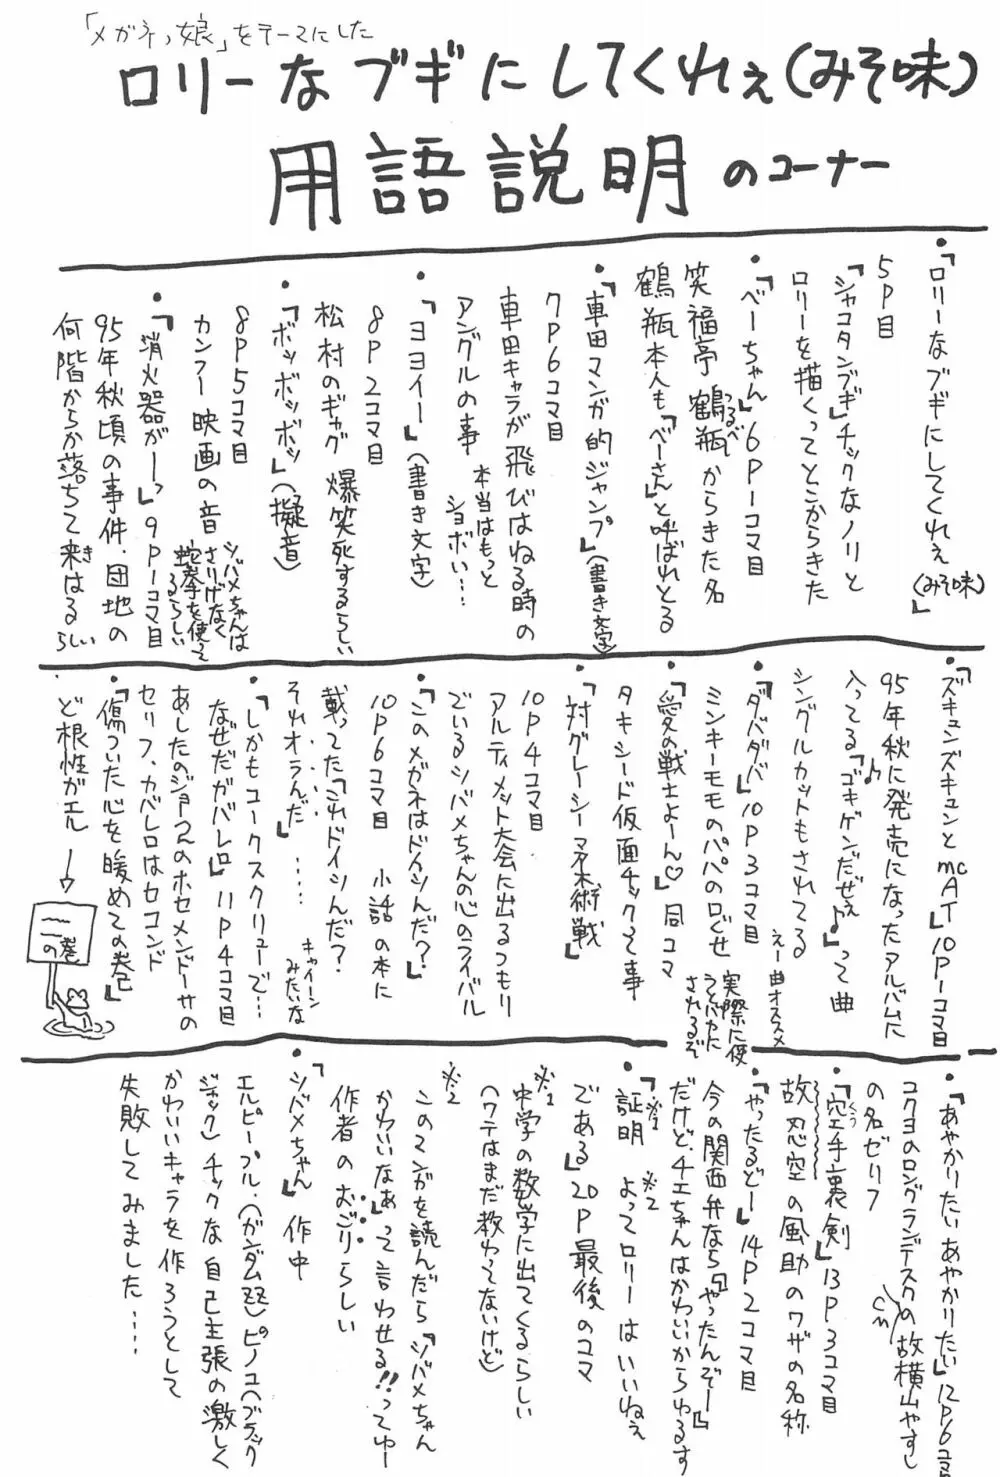 「メガネっ娘」をテーマにした
ロリーなブギにしてくれぇ(みそ味)
用語説明のコーナー
・「ロリーなブギにしてくれぇ(みそ味)」
5P目
「シャコタンブギ」チックなノリと
ロリーを描くってとこからきた
・「べーちゃん」6P1コマ目
笑福亭 鶴瓶からきた名
つるべ
鶴瓶本人も「べーさん」と呼ばれとる
・「車田マンガ的ジャンプ」(書き文字)
7P6コマ目
車田キャラが飛びはねる時の
アングルの事 本当はもっとショボい…
・「ヨヨイー」(書き文字)
8P2コマ目
松村のギャグ 爆笑死するらしい
・「ボッボッボッ」(擬音)
8P5コマ目
カンフー映画の音 シバメちゃんは
さりげなく
蛇拳を使って
るらしい
・「消火器がーっ」9P1コマ目
95年秋頃の事件.団地の
何階からか落ちて来はるらしい
き
・「ズキュンズキュンとmcAT」10P1コマ目
95年秋に発売になったアルバムに
入ってる「ゴキゲンだぜぇ♪♪」って曲
シングルカットもされてる えー曲オススメ
・「ダバダバ」10P3コマ目
ミンキーモモのパパの口ぐせ 実際に使
うとバカに
されるぞ
・「愛の戦士よーん♡」同コマ
タキシード仮面チックって事
・「対グレーシーマネ木術戦」
10P4コマ目
アルティメット大会に出るつもり
でいるシバメちゃんの心のライバル
・「このメガネはドイツんだ?」
10P6コマ目 小話の本に
載ってた「これドイツんだ?
それオランだ」…… キャイーン
みたいな
・「しかもコークスクリューで…
なぜだカバレロ」11P4コマ目
あしたのジョー2のホセメンドーサの
セリフ、カバレロはセコンド
・「傷ついた心を暖めての巻」
ど根性ガエル→
の巻
・「あやかりたいあやかりたい」12P6コマ目
コクヨのロングランデスクのCMの故横山やすし
の名ゼリフ
・「空手裏剣」13P3コマ目
くう
故 忍空の風助のワザの名称
・「やったるどー」14P2コマ目
今の関西弁なら「やったんぞー」
だけど、チエちゃんはかわいいからゆるす
・「証明※1 よってロリーはいいねぇ※2
である」20P最後のコマ
※1
中学の数学に出てくるらしい
(ワテはまだ教わってないけど)
※2
このマンガを読んだら「シバメちゃん
かわいいなぁ」って言わせる!!ってゆー
作者のおごりらしい
・「シバメちゃん」作中
エルピープル.(ガンダムZZ)ピノコ(ブラック
ジャック)チックな自己主張の激しく
かわいいキャラを作ろうとして
失敗してみました……